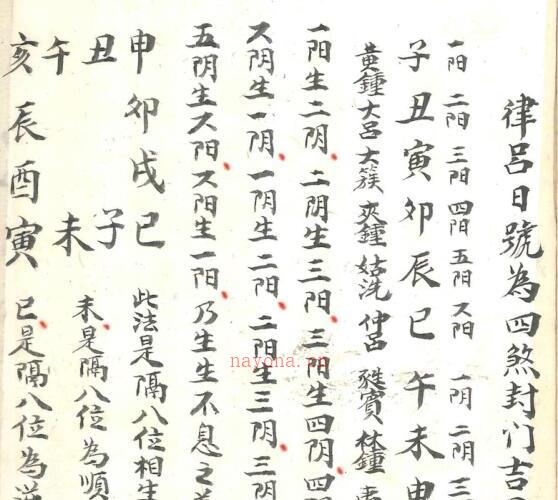 律呂日號為四煞封门吉
一阳 二阳 三阳 四阳 五阳 六阳 一阴 二阴 三
子丑寅卯辰巳午未申
黃鍾 大呂 大簇 夾鍾 姑洗 仲呂 蕤賓 林鍾
一阳生二阴 二阴生三阳 三阳生四阴
六阴生一阴 一阴生二阳 二阳生三阴 三阴
五阴生六阳 六阳生一阳 乃生生不息之
申卯戌巳 此法是隔八位相生
丑 子 未是隔八位為順
午 未
亥辰酉寅 巳是隔八位為逆